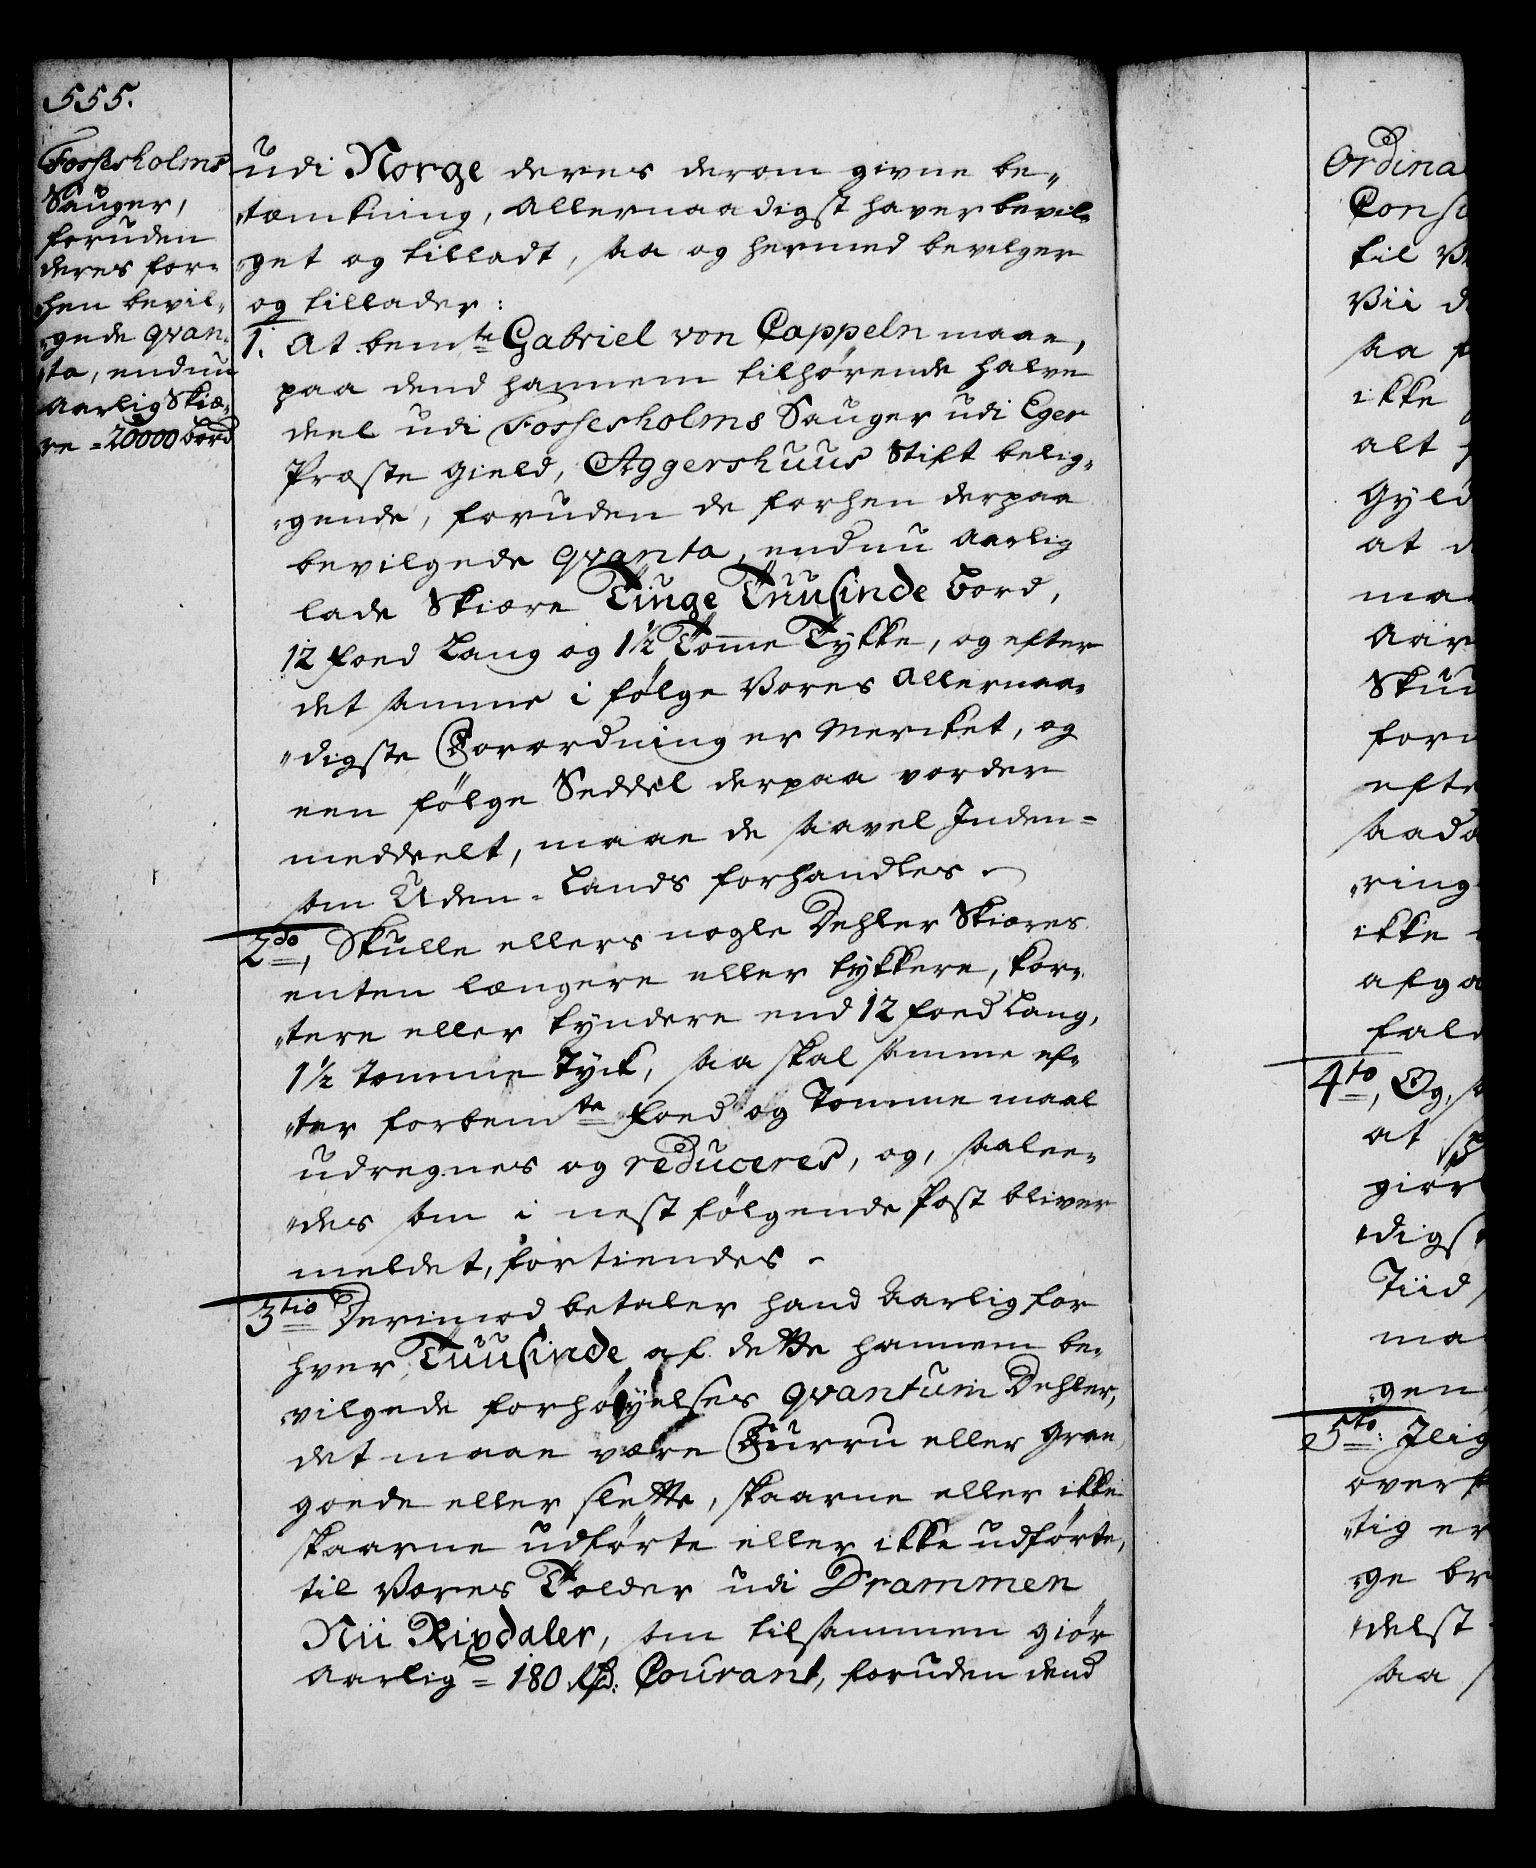 555.
Fossesholms
Sauger,
foruden
deres for-
hen bevil-
gede qvan-
ta, endnu
aarlig Skiæ-
re = 20000 bord
udi Norge deres derom givne be-
tænkning, allernaadigst haver bevil-
get og tilladt, saa og hermed bevilger
og tillader:
1. At bemte Gabriel von Cappeln maae,
paa dend hannem tilhørende halve
deel udi Fossesholms Sauger udi Eger
Præste Gield, Aggershuus Stift belig-
gende, foruden de forhen derpaa
bevilgede qvanta, endnu aarlig
lade Skiære Tiuge Tuusinde bord,
12 foed Lang og 1½ Tomme Tykke, og efter
det samme i følge Vores allernaa-
digste Forordning er Merket, og
een følge Seddel derpaa vorder
meddeelt, maae de saavel Inden-
som Uden-Lands forhandles.
2do, Skulle ellers nogle Dehler Skiæres
enten længere eller tykkere, kor-
tere eller tyndere end 12 foed Lang,
1½ tomme Tyck, saa skal samme ef-
ter forbemte foed og Tomme maal
udregnes og reduceres, og, saalee-
des som i nest følgende Post bliver
meldet, fortiendes.
3tio Derimod betaler hand aarlig for
hver Tuusinde af dette hannem be-
vilgede forhøyelses qvantum Dehler,
det maae være Furru eller Gran
goede eller slette, skaarne eller ikke
skaarne udførte eller ikke udførte,
til Vores Tolder udi Drammen
Nii Rixdaler, som tilsammen giør
aarlig = 180 Rd: Courant, foruden dend
Ordina
Cons
til V
Vii d
saa f
ikke
alt f
Gyld
at d
ma
Aar
Sku
for
efte
saad
ring
ikke
afga
fald
4to, Og, s
at sp
giør
digst
Tiid
ma
gen
5to: Ilig
overf
tig er
ge br
delst
saa